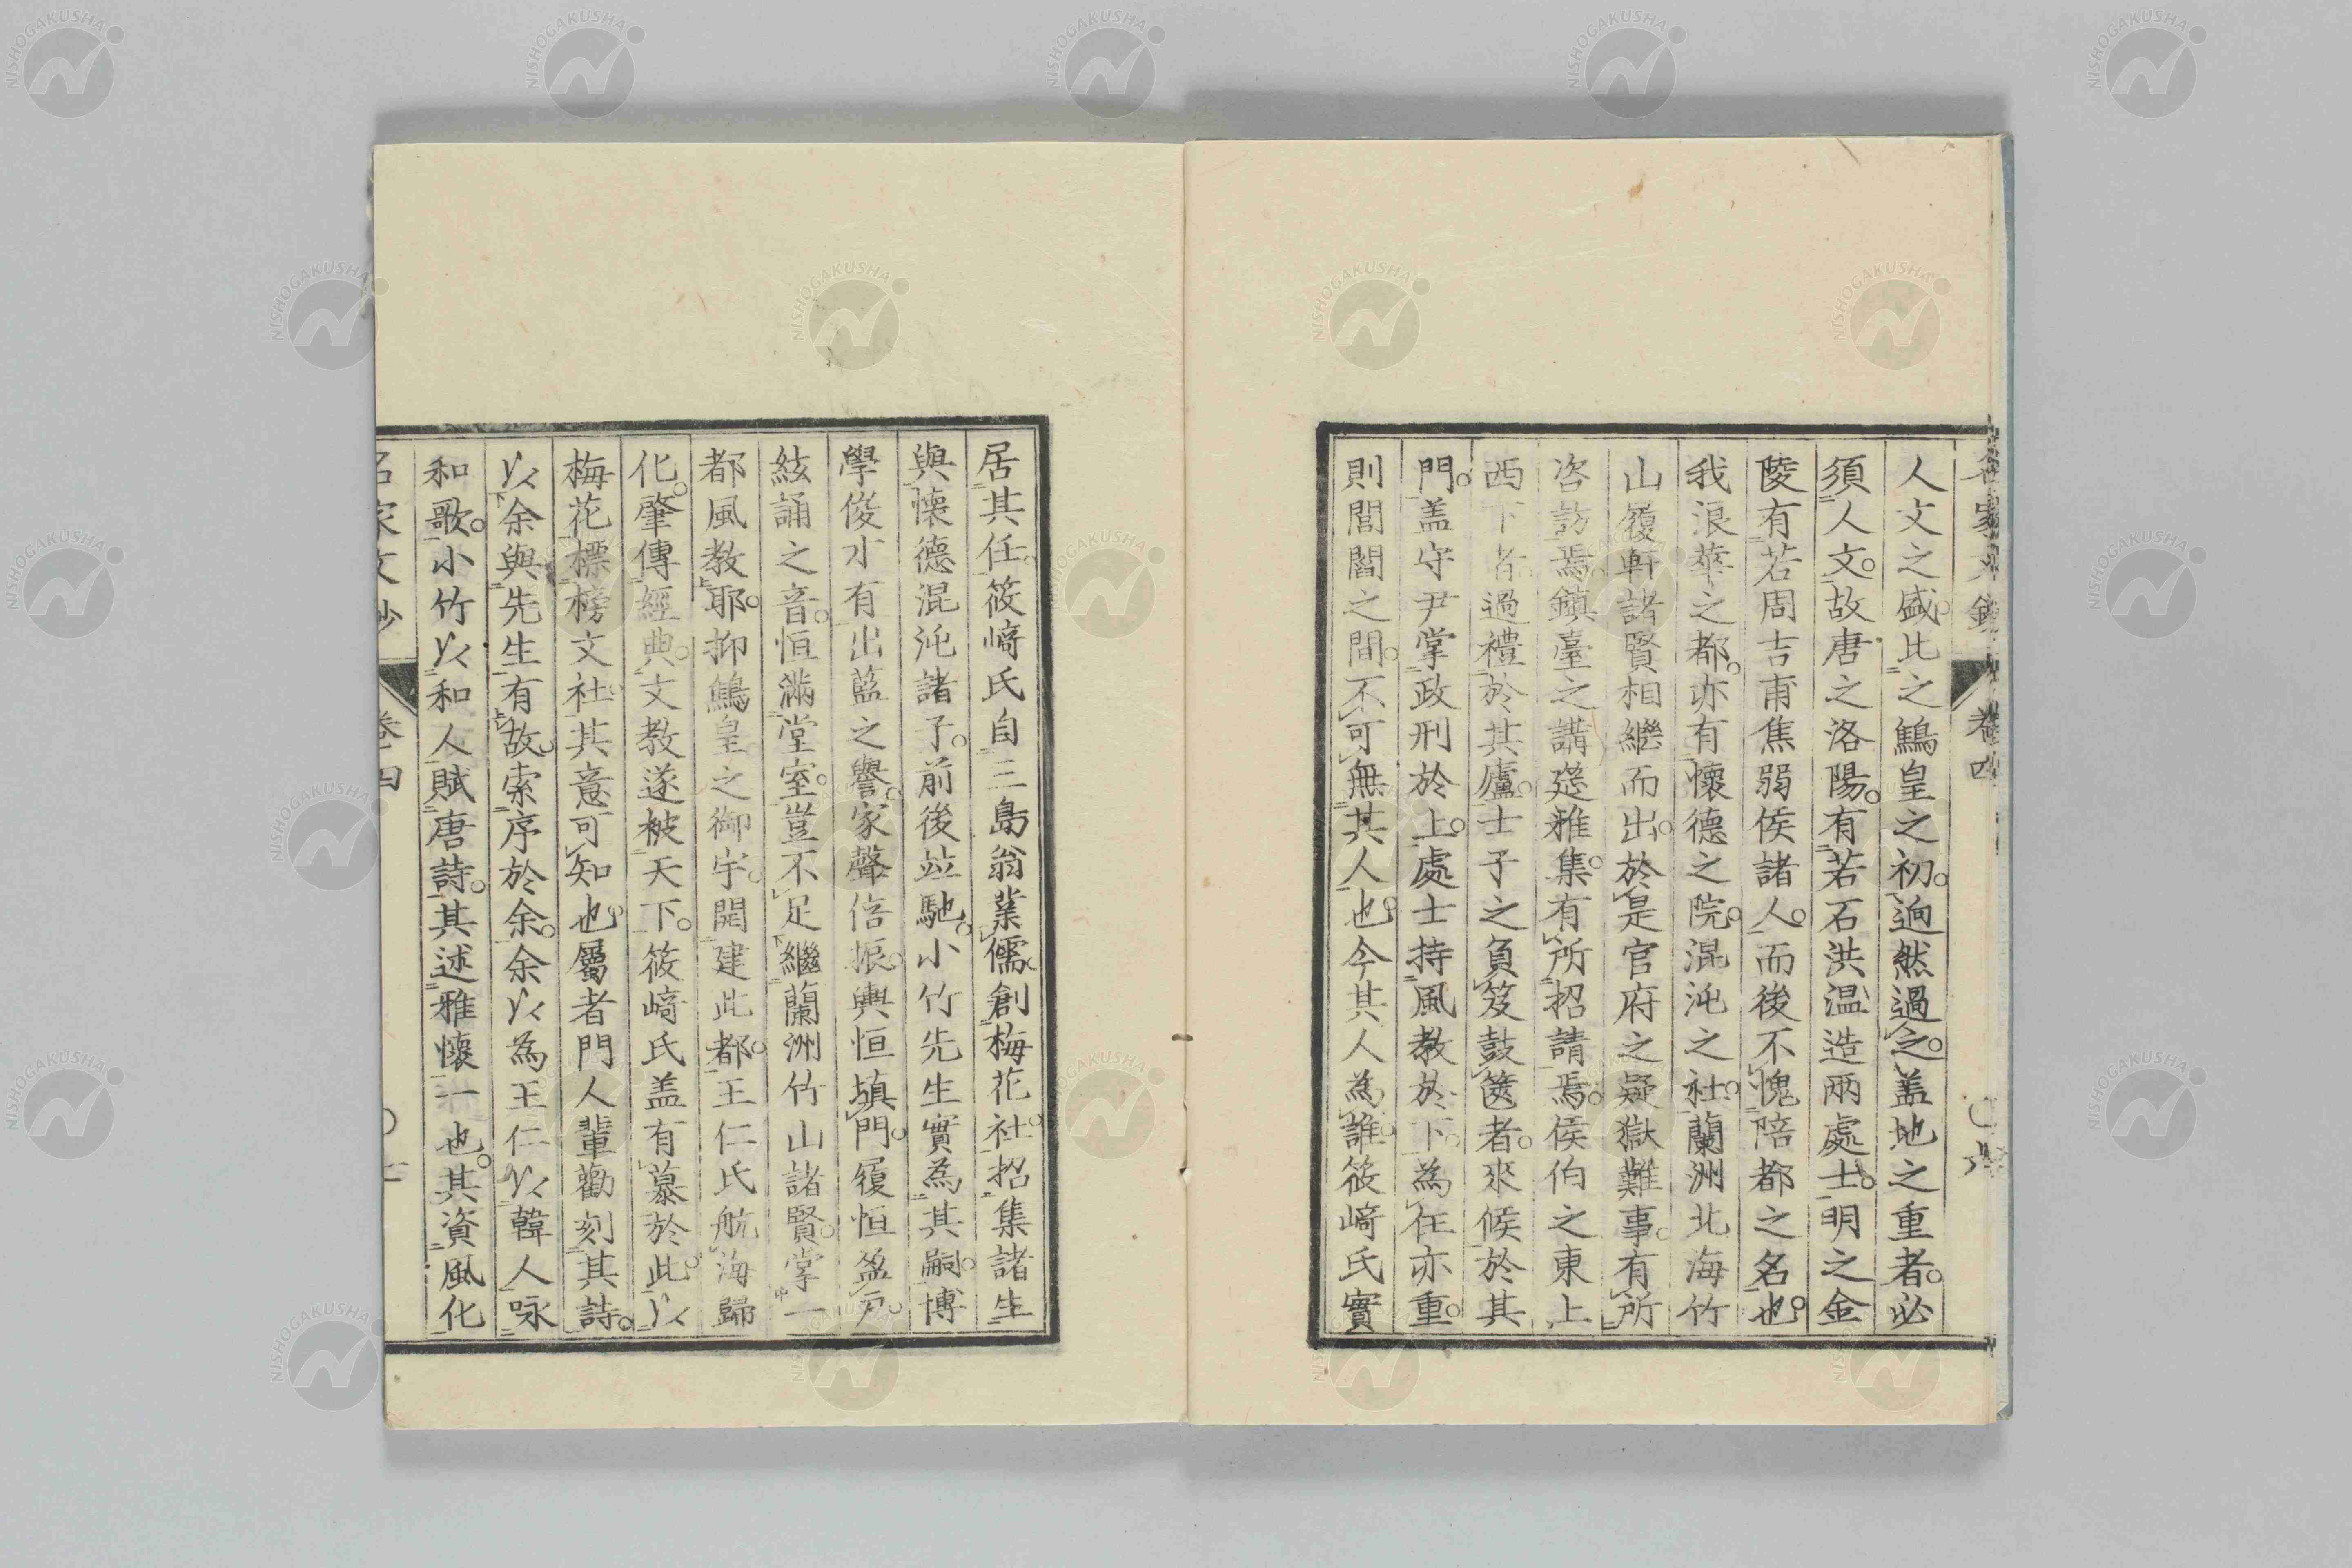 人文之盛比之鷦皇之初逈然過之盖地之重者必
須人文故唐之洛陽有若石洪温造兩處士明之金
陵有若周吉甫焦弱侯諸人而後不愧陪都之名也
我浪華之都亦有懷德之院混沌之社蘭洲北海竹
山履軒諸賢相繼而出於是官府之疑獄難事有所
咨訪焉鎮臺之講筵雅集有所招請焉侯伯之東上
西下者過禮於其廬士子之負笈鼓篋者來候於其
門盖守尹掌政刑於上處士持風教於下為任亦重
則閭閻之間不可無其人也今其人為誰筱﨑氏實
居其任筱﨑氏自三島翁業儒創梅花社招集諸生
與懷德混沌諸子前後竝馳小竹先生實為其嗣博
學俊才有出藍之譽家聲倍振輿恒填門履恒盈戸
絃誦之音恒滿堂室豈不足繼蘭洲竹山諸賢掌一
都風教耶抑鷦皇之御宇開建此都王仁氏航海歸
化肇傳經典文教遂被天下筱﨑氏盖有慕於此以
梅花標榜文社其意可知也屬者門人輩勸刻其詩
以余與先生有故索序於余余以為王仁以韓人咏
和歌小竹以和人賦唐詩其述雅懷一也其資風化
名家文抄
卷四
NISHOGAKUSHA